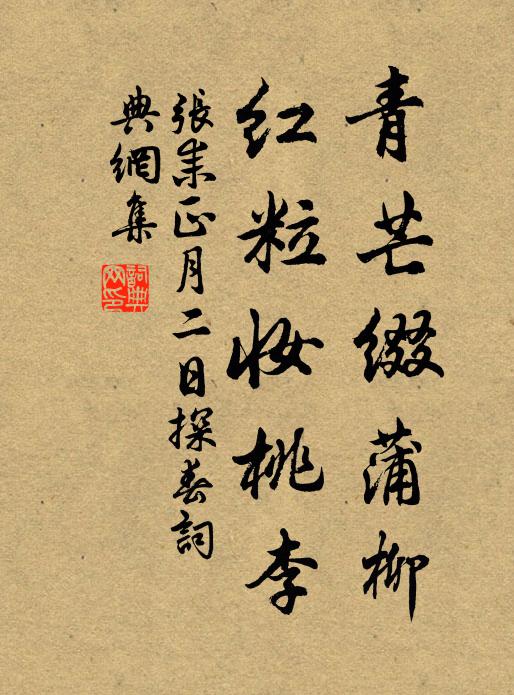 青芒缀蒲柳
红粒妆桃李
張耒正月二日探春
詞典網集
詞典网印